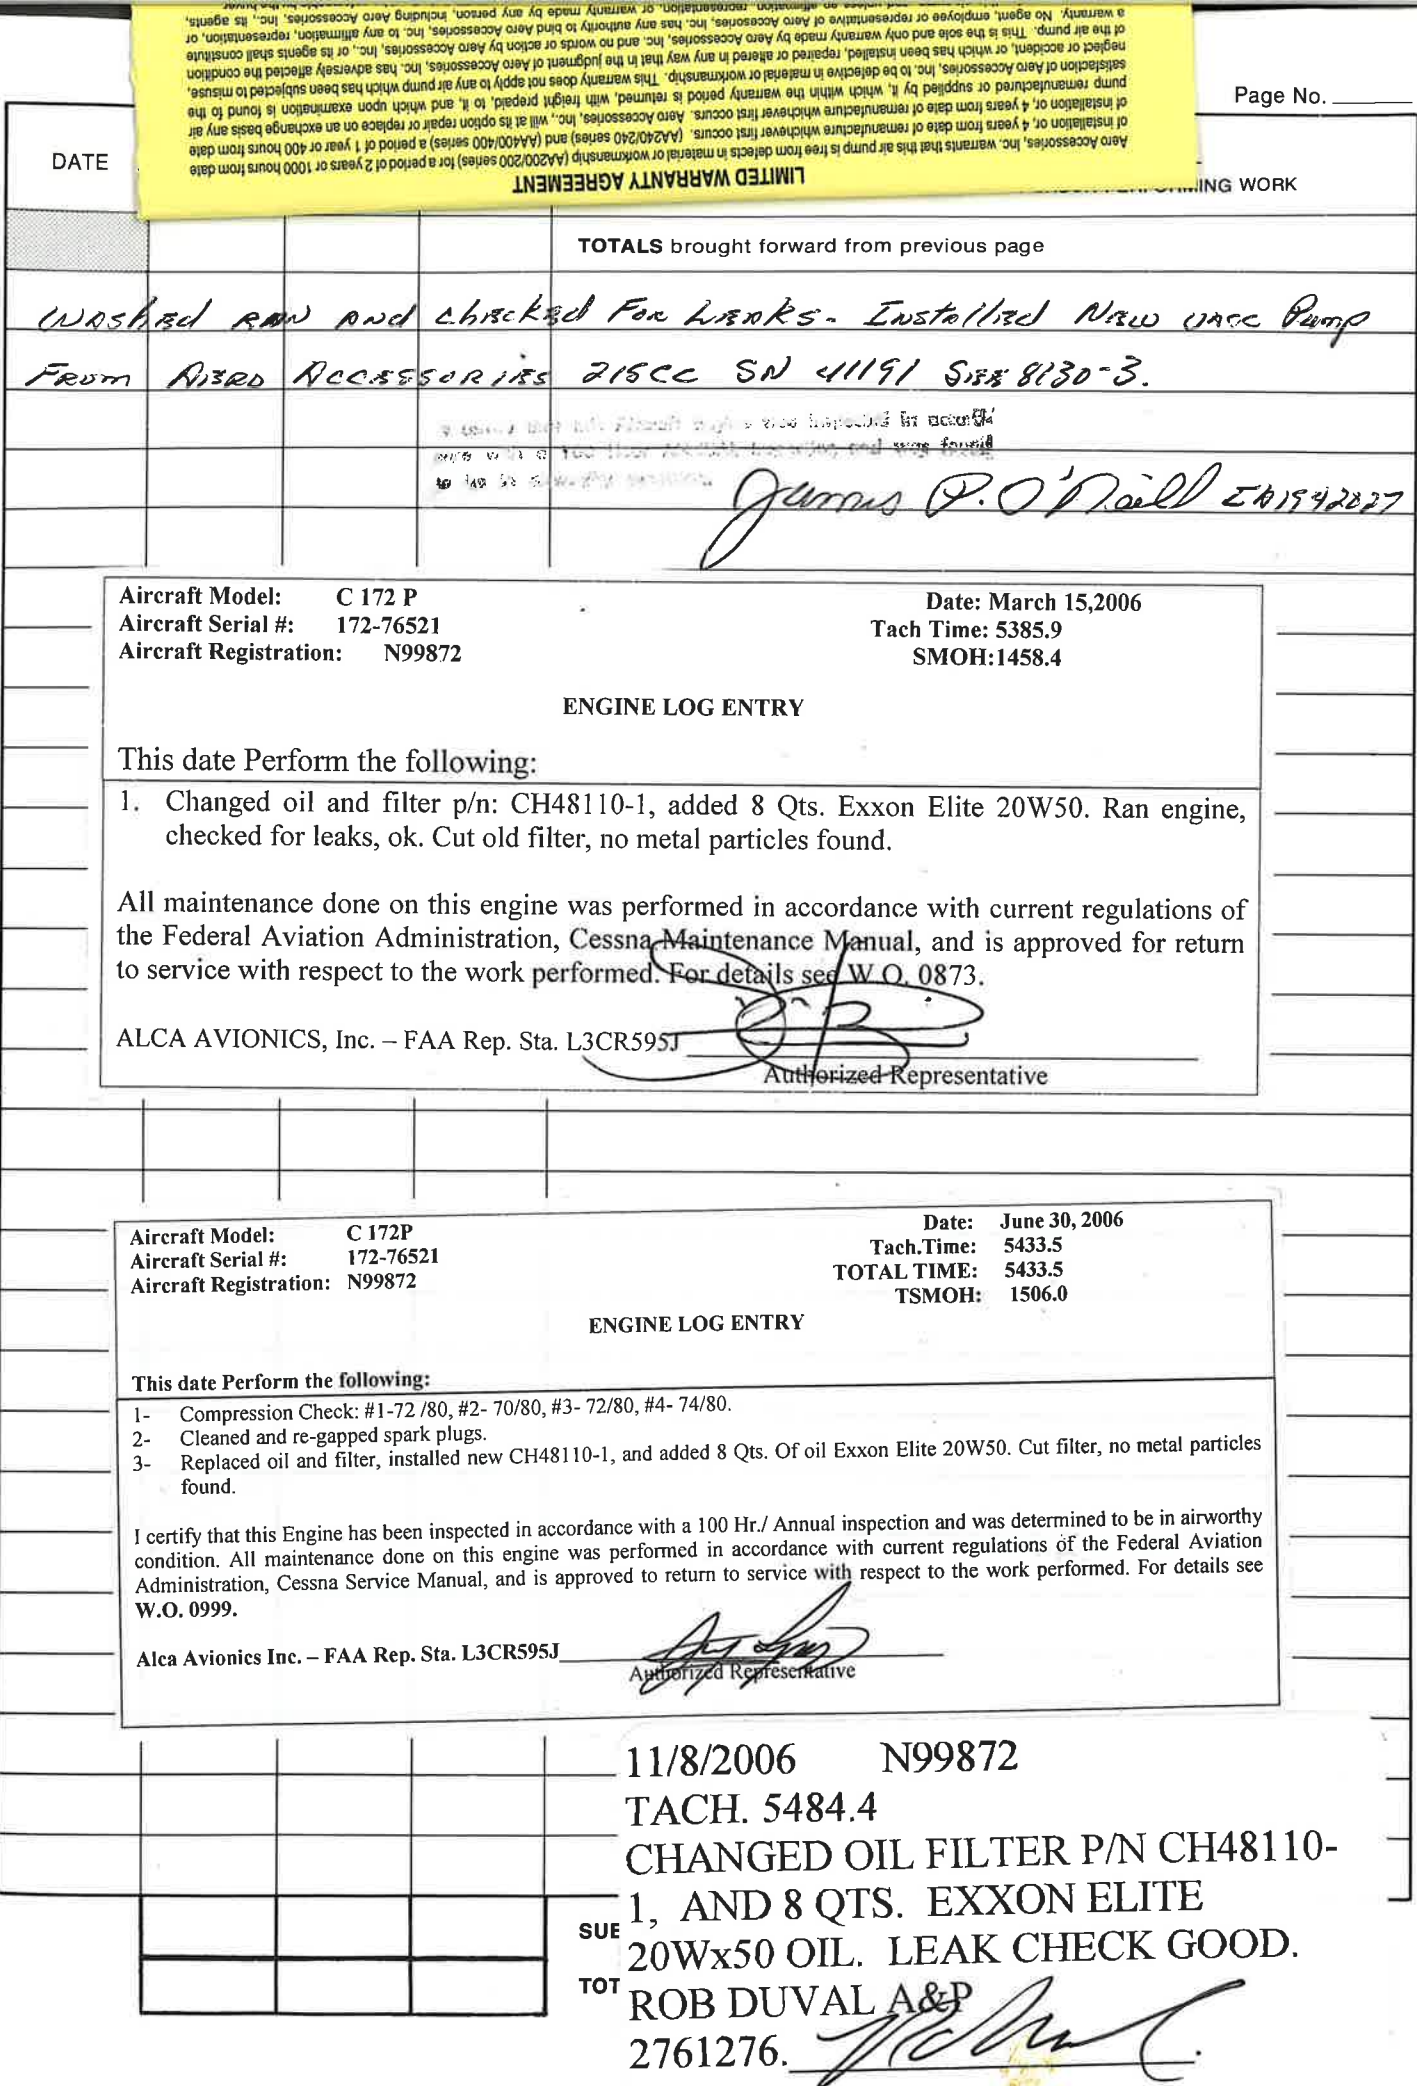 LIMITED WARRANTY AGREEMENT
Aero Accessories, Inc. warrants that this air pump is free from defects in material or workmanship (AA200/200 series) for a period of 2 years or 1000 hours from date
of installation or, 4 years from date of remanufacture whichever first occurs. (AA240/240 series) and (AA400/400 series) a period of 1 year or 400 hours from date
of installation or, 4 years from date of remanufacture whichever first occurs. Aero Accessories, Inc., will at its option repair or replace on an exchange basis any air
pump remanufactured or supplied by it, which within the warranty period is returned, with freight prepaid, to it, and which upon examination is found to the
satisfaction of Aero Accessories, Inc. to be defective in material or workmanship. This warranty does not apply to any air pump which has been subjected to misuse,
neglect or accident, or which has been installed, repaired or altered in any way that in the judgment of Aero Accessories, Inc. has adversely affected the condition
of the air pump. This is the sole and only warranty made by Aero Accessories, Inc. and no words or action by Aero Accessories, Inc. or its agents shall constitute
a warranty. No agent, employee or representative of Aero Accessories, Inc. has any authority to bind Aero Accessories, Inc. to any affirmation, representation, or
Page No.
DATE
ING WORK
TOTALS brought forward from previous page
Washed ran and checked For Leaks- Installed New vacc Pump
From Aero Accessories 215CC SN 41191 See 8130-3.
was inspected in accord
and was found
to be
James P. O'Neill IA1942027
Aircraft Model: C 172 P
Aircraft Serial #: 172-76521
Aircraft Registration: N99872
Date: March 15,2006
Tach Time: 5385.9
SMOH:1458.4
ENGINE LOG ENTRY
This date Perform the following:
1. Changed oil and filter p/n: CH48110-1, added 8 Qts. Exxon Elite 20W50. Ran engine,
checked for leaks, ok. Cut old filter, no metal particles found.
All maintenance done on this engine was performed in accordance with current regulations of
the Federal Aviation Administration, Cessna Maintenance Manual, and is approved for return
to service with respect to the work performed. For details see W.O. 0873.
ALCA AVIONICS, Inc. – FAA Rep. Sta. L3CR595J
Authorized Representative
Aircraft Model: C 172P
Aircraft Serial #: 172-76521
Aircraft Registration: N99872
Date: June 30, 2006
Tach.Time: 5433.5
TOTAL TIME: 5433.5
TSMOH: 1506.0
ENGINE LOG ENTRY
This date Perform the following:
1- Compression Check: #1-72 /80, #2- 70/80, #3- 72/80, #4- 74/80.
2- Cleaned and re-gapped spark plugs.
3- Replaced oil and filter, installed new CH48110-1, and added 8 Qts. Of oil Exxon Elite 20W50. Cut filter, no metal particles
found.
I certify that this Engine has been inspected in accordance with a 100 Hr./ Annual inspection and was determined to be in airworthy
condition. All maintenance done on this engine was performed in accordance with current regulations of the Federal Aviation
Administration, Cessna Service Manual, and is approved to return to service with respect to the work performed. For details see
W.O. 0999.
Alca Avionics Inc. – FAA Rep. Sta. L3CR595J
Authorized Representative
11/8/2006 N99872
TACH. 5484.4
CHANGED OIL FILTER P/N CH48110-
1, AND 8 QTS. EXXON ELITE
20Wx50 OIL. LEAK CHECK GOOD.
ROB DUVAL A&P
2761276.
SUB
TOT